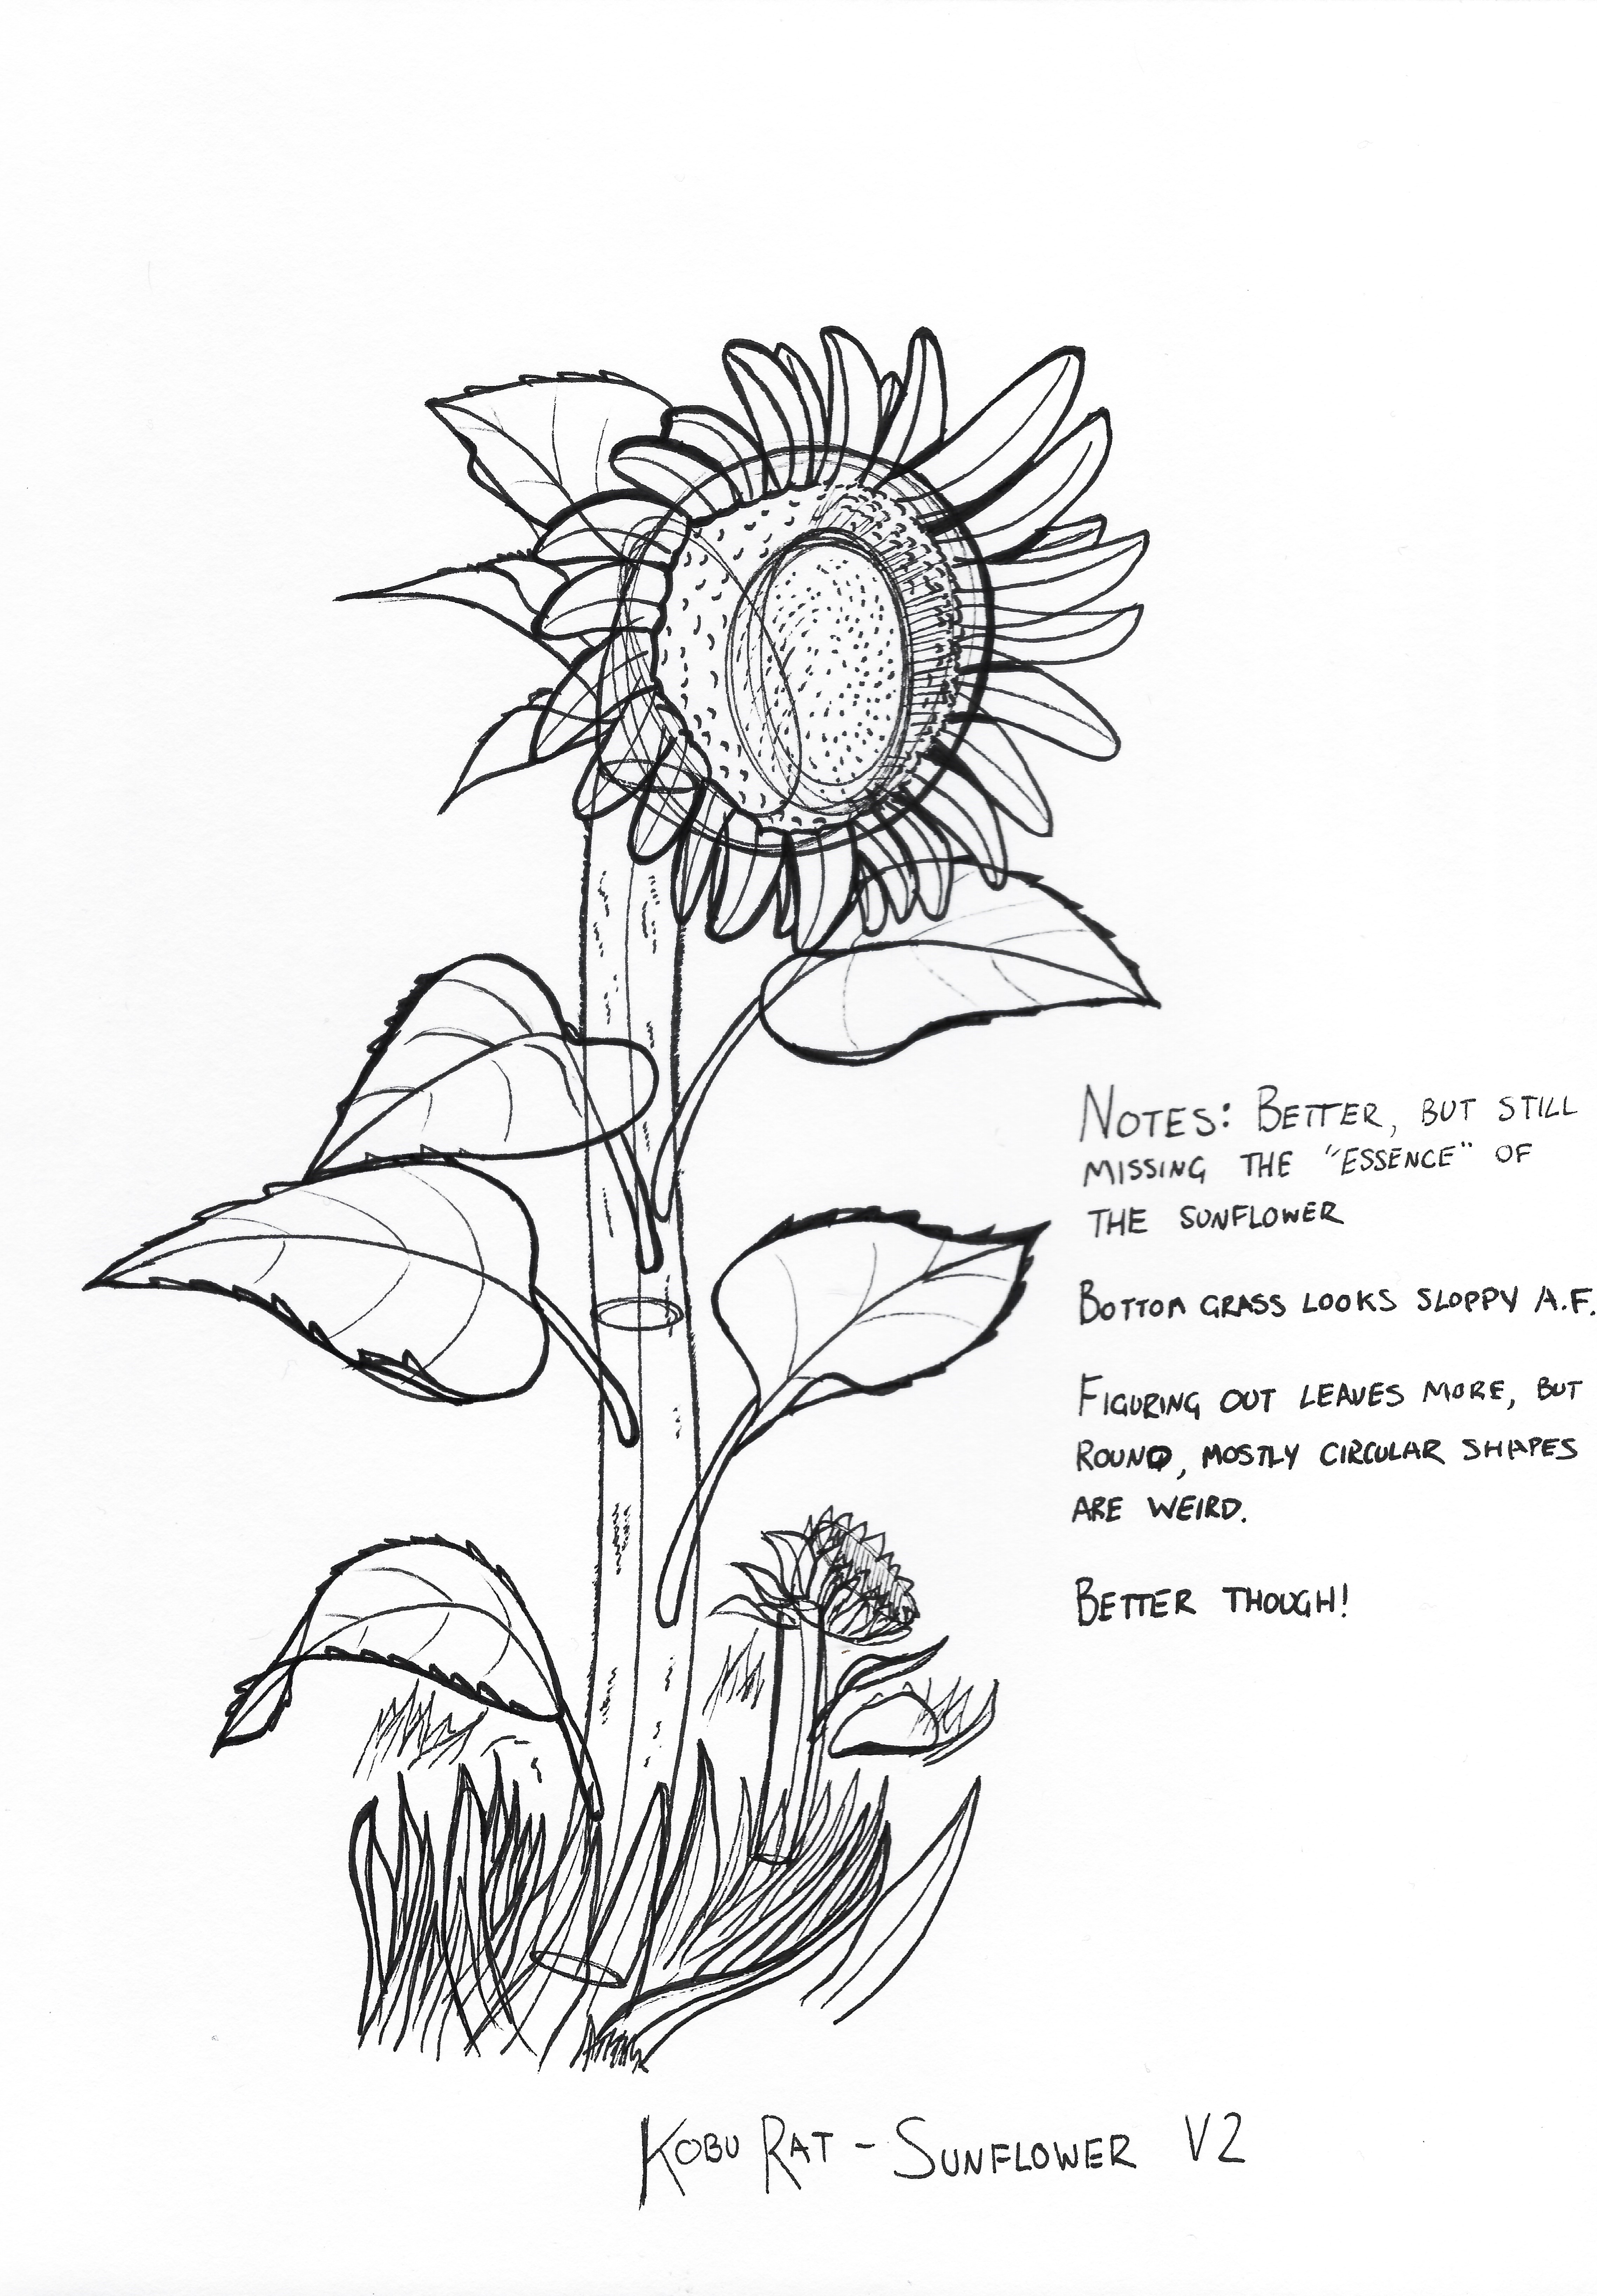 NOTES: BETTER, BUT STILL
MISSING THE "ESSENCE" OF
THE SUNFLOWER
BOTTOM GRASS LOOKS SLOPPY A.F.
FIGURING OUT LEAVES MORE, BUT
ROUND, MOSTLY CIRCULAR SHAPES
ARE WEIRD.
BETTER THOUGH!
KOBU RAT - SUNFLOWER V2